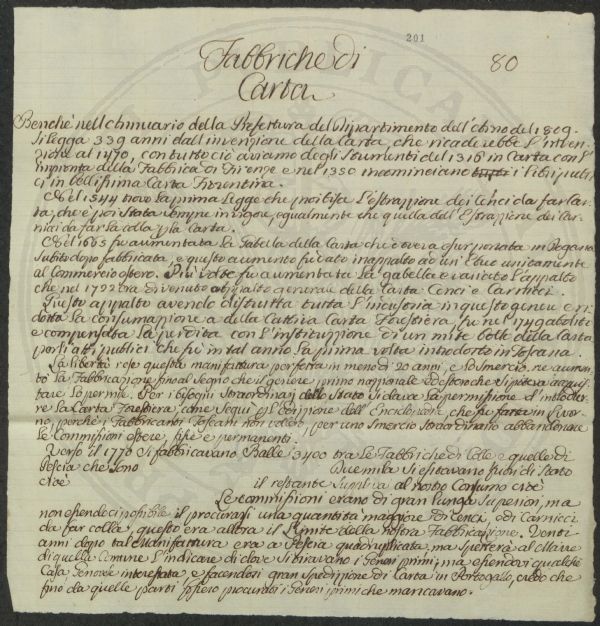 201
80
Fabbriche di
Carta
Benché nell'Annuario della Prefettura del Dipartimento dell'Arno del 1809
Si legga 339 anni dall'invenzione della Carta, che ricaderebbe l'inven
zione al 1470, con tutto ciò abbiamo degli Strumenti del 1316 in Carta con l'
impronta della Fabbrica di Firenze e nel 1350 incominciano i libri pubbli
ci in bellissima Carta Fiorentina.
Nel 1544 trovo la prima Legge che proibisce l'estrazione dei Cenci da far Car
ta, che è poi stata sempre in vigore, egualmente che quella dell'Estrazione dei Car
nicci da far la colla p la Carta.
Nel 1605 fu aumentata la Gabella della Carta che doveva esser portata in Dogana
Subito dopo fabbricata, e questo aumento fu dato in appalto ad un unitamente
al Commercio Più volte fu aumentata la gabella e variato l'appalto
che nel 1722 era divenuto appalto generale della Carta Cenci e Carnicci.
Questo appalto avendo distrutta tutta l'industria in questo genere e ri
dotta la consumazione a della Cattiva Carta Forestiera, fu nel abolito
e compensata la perdita con l'instituzione di un mite bollo della Carta
per gli atti publici che fu in tal anno la prima volta introdotto in Toscana.
La libertà rese questa manifattura perfetta in meno di 20 anni, e lo Smercio ne aumen
tò la Fabbricazione fino al Segno che il genere primo nazionale
tare Per i bisogni straordinarj dello Stato si dava la permissione d'introdur
re la Carta Forestiera, come Seguì per l'edizione dell'Enciclopedia, che fu fatta in Livor
no, perché i Fabbricanti Toscani non vollero, per uno Smercio straordinario abbandonare
le Commissioni estere, fisse e permanenti.
Verso il 1770 si fabbricavano Balle 3400 tra le Fabbriche di Colle e quelle di
Pescia che sono Duemila si esitavano fuori di Stato
cioè il restante Suppliva al nostro Consumo cioè
Le commissioni erano di gran lunga Superiori, ma
non essendoci possibile il procurarsi una quantità maggiore di Cenci, o di Carnicci
da far colla, questo era allora il Limite della nostra Fabbricazione. Venti
anni dopo tal Manifattura era a Pescia quadruplicata, ma spetterà al Maire
di quella Comune l'indicare di dove si tiravano i generi primi, ma essendovi qualche
Casa Genovese interessata, e facendosi gran spedizione di Carta in Portogallo, credo che
fino da quelle parti procurarsi i generi primi che mancavano.